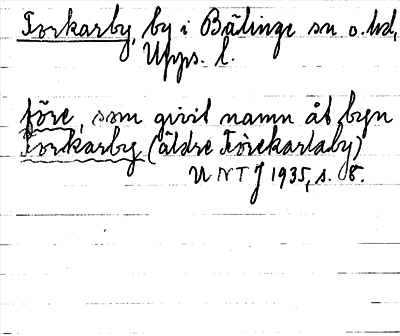 Forkarby, by i Bälinge sn o. hd,
Upps. l.
före, som givit namn åt byn
Forkarby (äldre Förekarlaby)
UNT J 1935, s. 8.